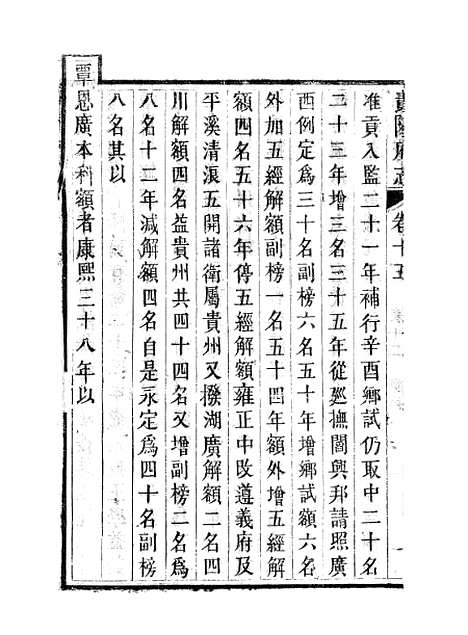 貴陽府志 卷十五
准貢入監二十一年補行辛酉鄉試仍取中二十名
二十三年增三名三十五年從廵撫閻興邦請照廣
西例定爲三十名副榜六名五十年增鄉試額六名
外加五經解額副榜一名五十四年額外增五經解
額四名五十六年停五經解額雍正中改遵義府及
平溪清浪五開諸衛屬貴州又撥湖廣解額二名四
川解額四名益貴州共四十四名又增副榜二名爲
八名十二年減解額四名自是永定爲四十名副榜
八名其以
覃恩廣本科額者康熙三十八年以